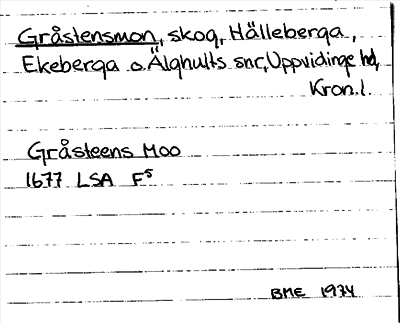 Gråstensmon, skog, Hälleberga,
Ekeberga o. Älghults snr, Uppvidinge hd,
Kron.l.
Gråsteens Moo
1677 LSA F⁵
BME 1974